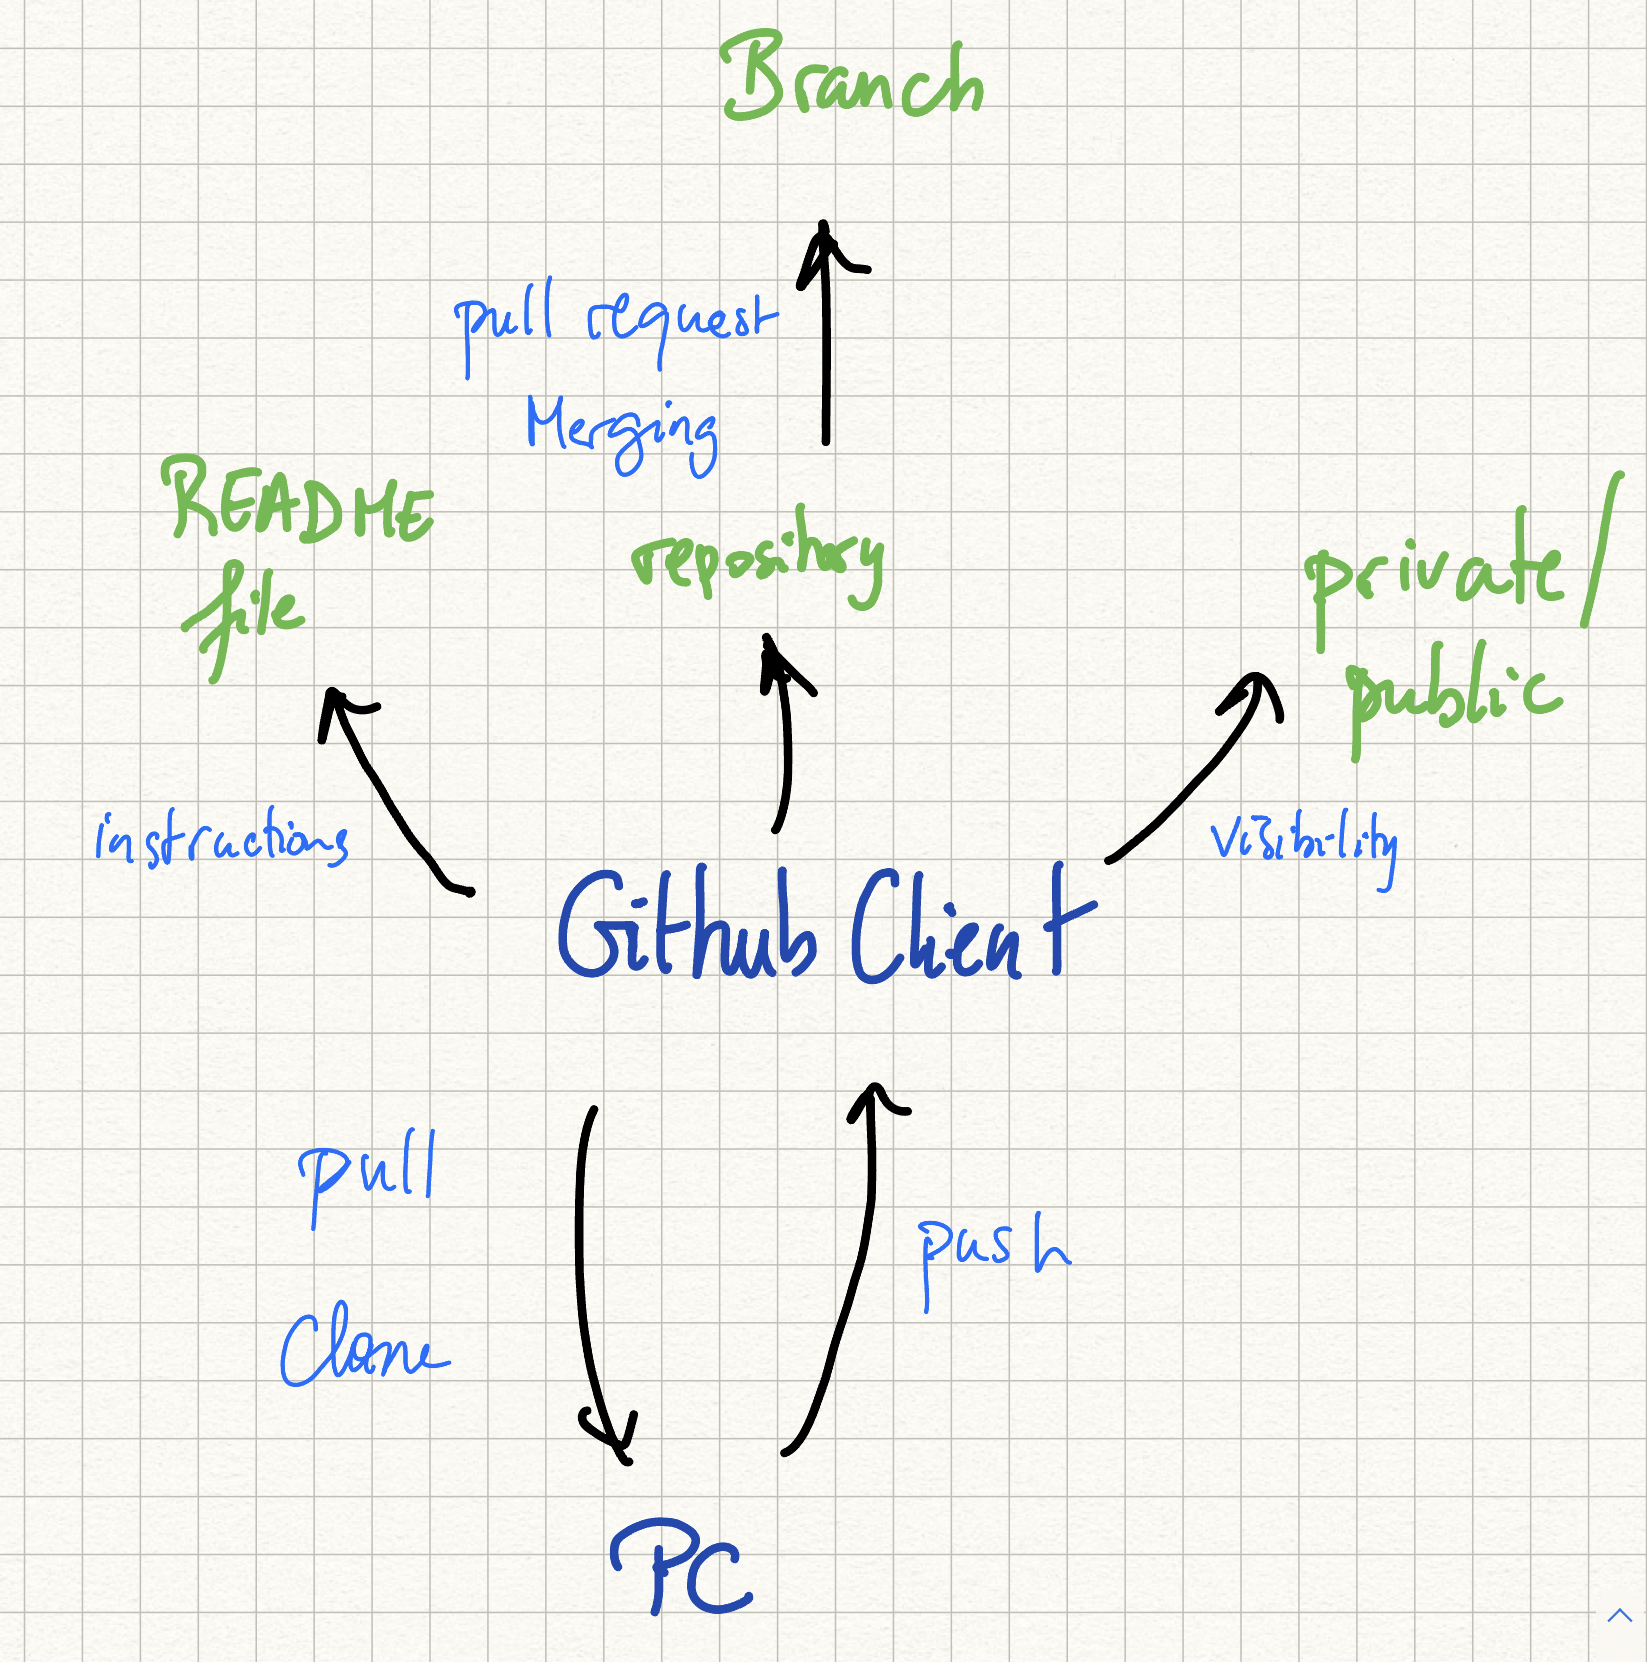 Branch
pull request
Merging
README
file
repository
private/
public
instructions
visibility
Github Client
pull
Clone
push
PC